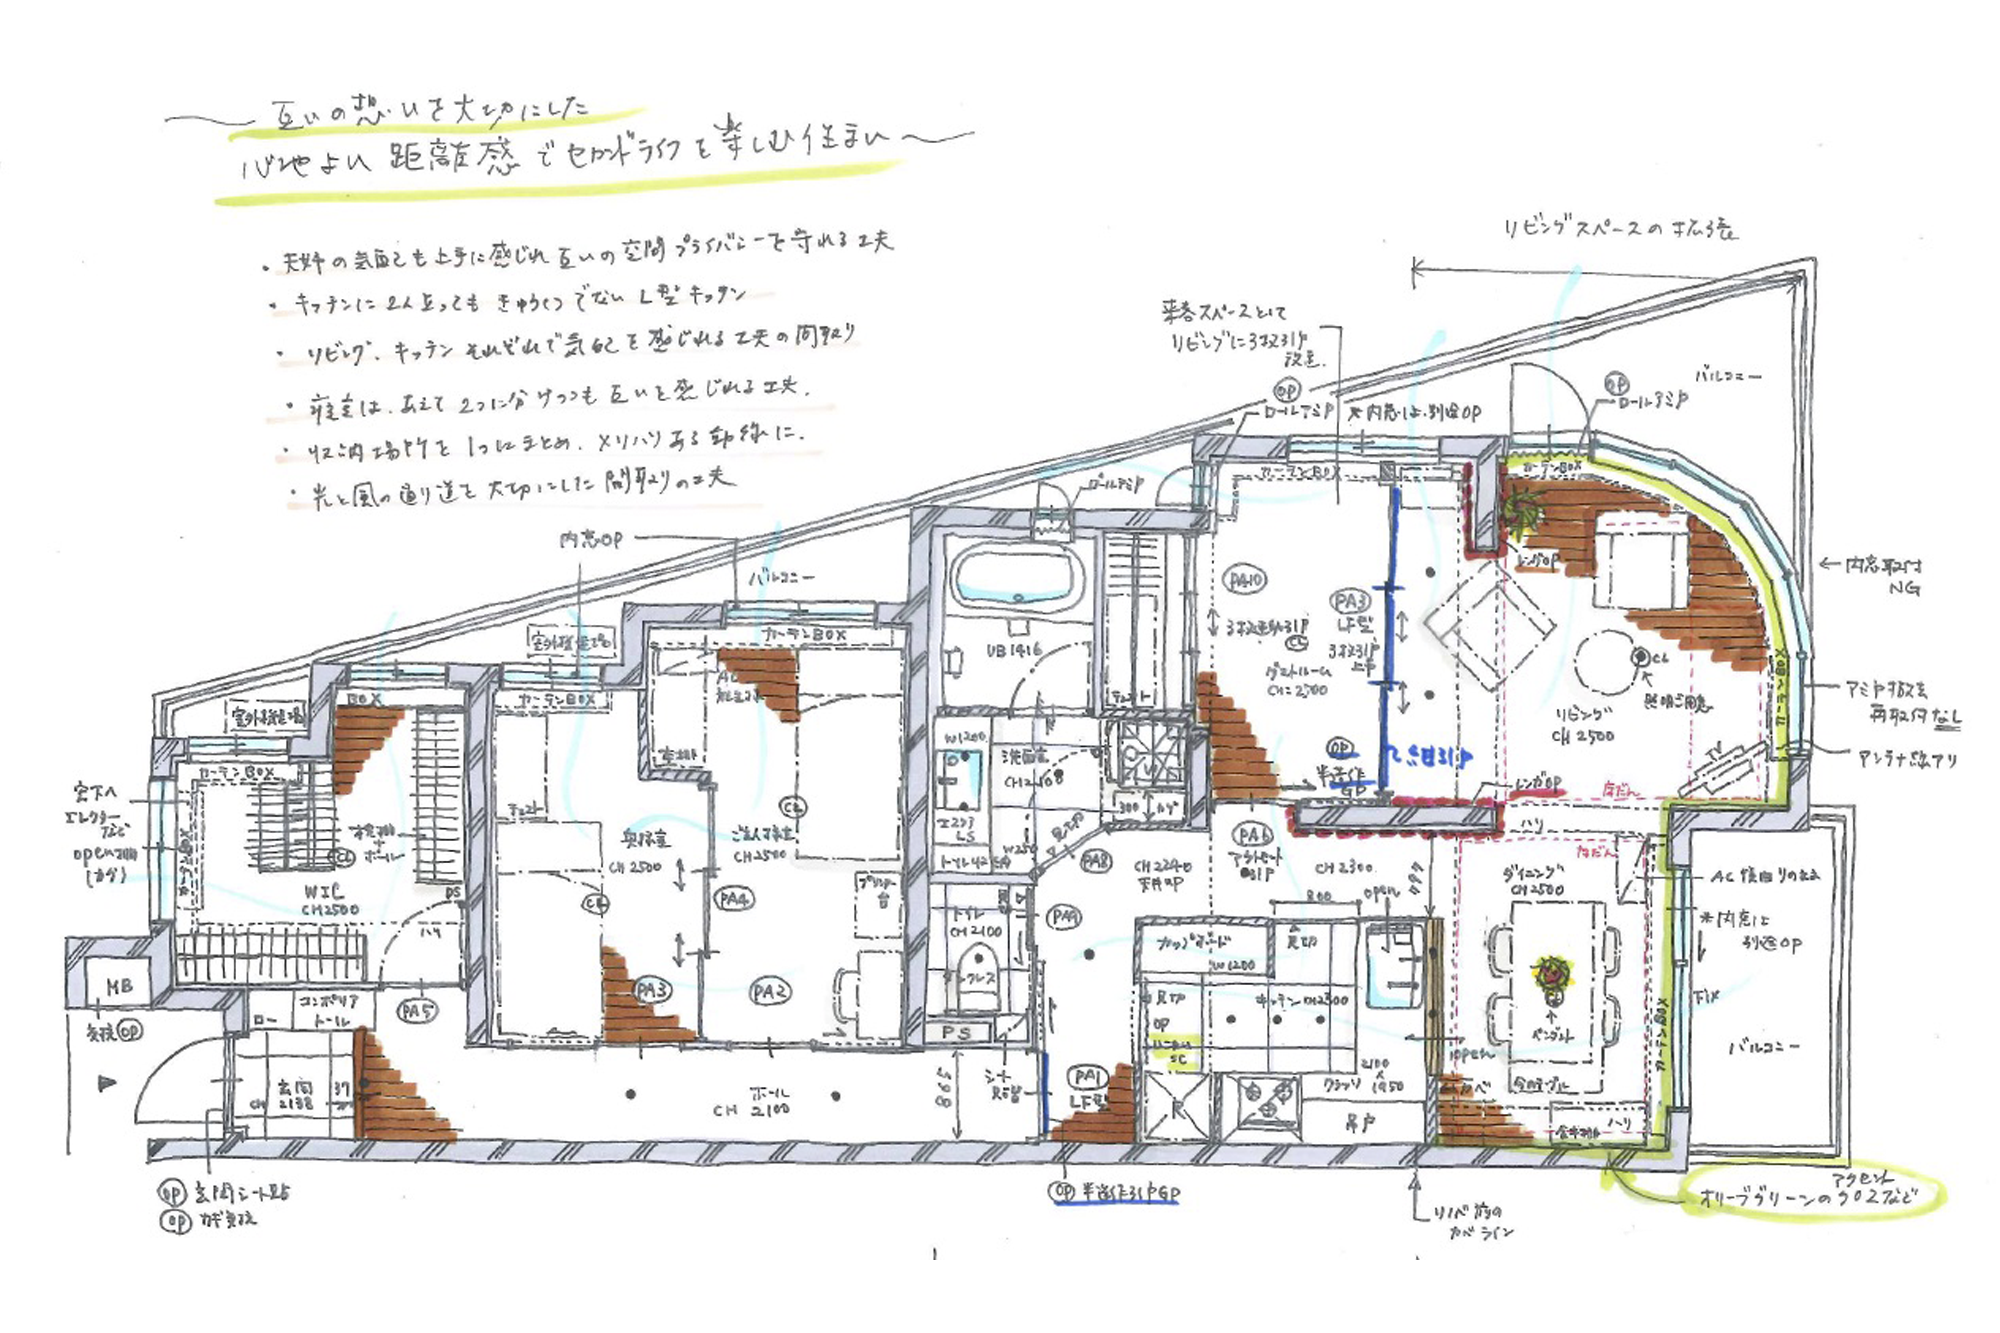 互いの想いを大切にした
心地よい距離感でセカンドライフを楽しむ住まい
・夫婦の気配も上手に感じれ互いの空間プライバシーを守れる工夫
・キッチンに2人立ってもきゅうくつでない L型キッチン
・リビング、キッチンそれぞれで気配を感じれる工夫の間取り
・寝室は、あえて2つに分けつつも互いを感じれる工夫.
・収納場所を1つにまとめ、メリハリある動線に.
・光と風の通り道を大切にした間取りの工夫
リビングスペースの拡張
来客スペースとして
リビングに3枚引戸
OP
ロールアミ戸
※内窓は別途OP
OP
ロールアミ戸
バルコニー
カーテンBOX
カーテンBOX
ロールアミ戸
内窓OP
バルコニー
内窓取付
NG
レンガOP
UB1416
PA10
PA3
LF型
3枚引戸
上吊
3枚連動引戸
CL
ゲストルーム
CH=2500
CL
照明ご用意
リビング
CH2500
カーテンBOX
アミ戸撤去
再取付なし
アンテナ線アリ
TV
室外機置場
カーテンBOX
カーテンBOX
BOX
室外機置場
カーテンBOX
チェスト
チェスト
W1200
洗面室
CH2108
300
OP
レンガOP
床だん
窓下へ
エレクター
など
open棚
(カゲ)
CL
WIC
CH2500
DS
ハリ
奥様室
CH2500
CL
ご主人様室
CH2500
CL
プリンター
台
PA4
PA3
PA2
PA5
LS
PA8
PA9
トイレ
CH2100
タンクレス
PS
CH2240
PA6
アウトセット
引戸
CH2300
800
open
ハリ
床だん
ダイニング
CH2500
AC後回りのまま
※内窓は
別途OP
FIX
カーテンBOX
バルコニー
MB
OP
コンポリア
トール
ロー
玄関
CH
2138
ホール
CH 2100
898
シート
PA1
LF型
カップボード
W1200
見切
見切
OP
キッチン CH2300
R
吊戸
open
ペンダント
カベ
ハリ
OP 玄関シート貼
OP カギ交換
OP 半造作引戸GP
リノベ前の
カベライン
アクセント
オリーブグリーンのクロスなど